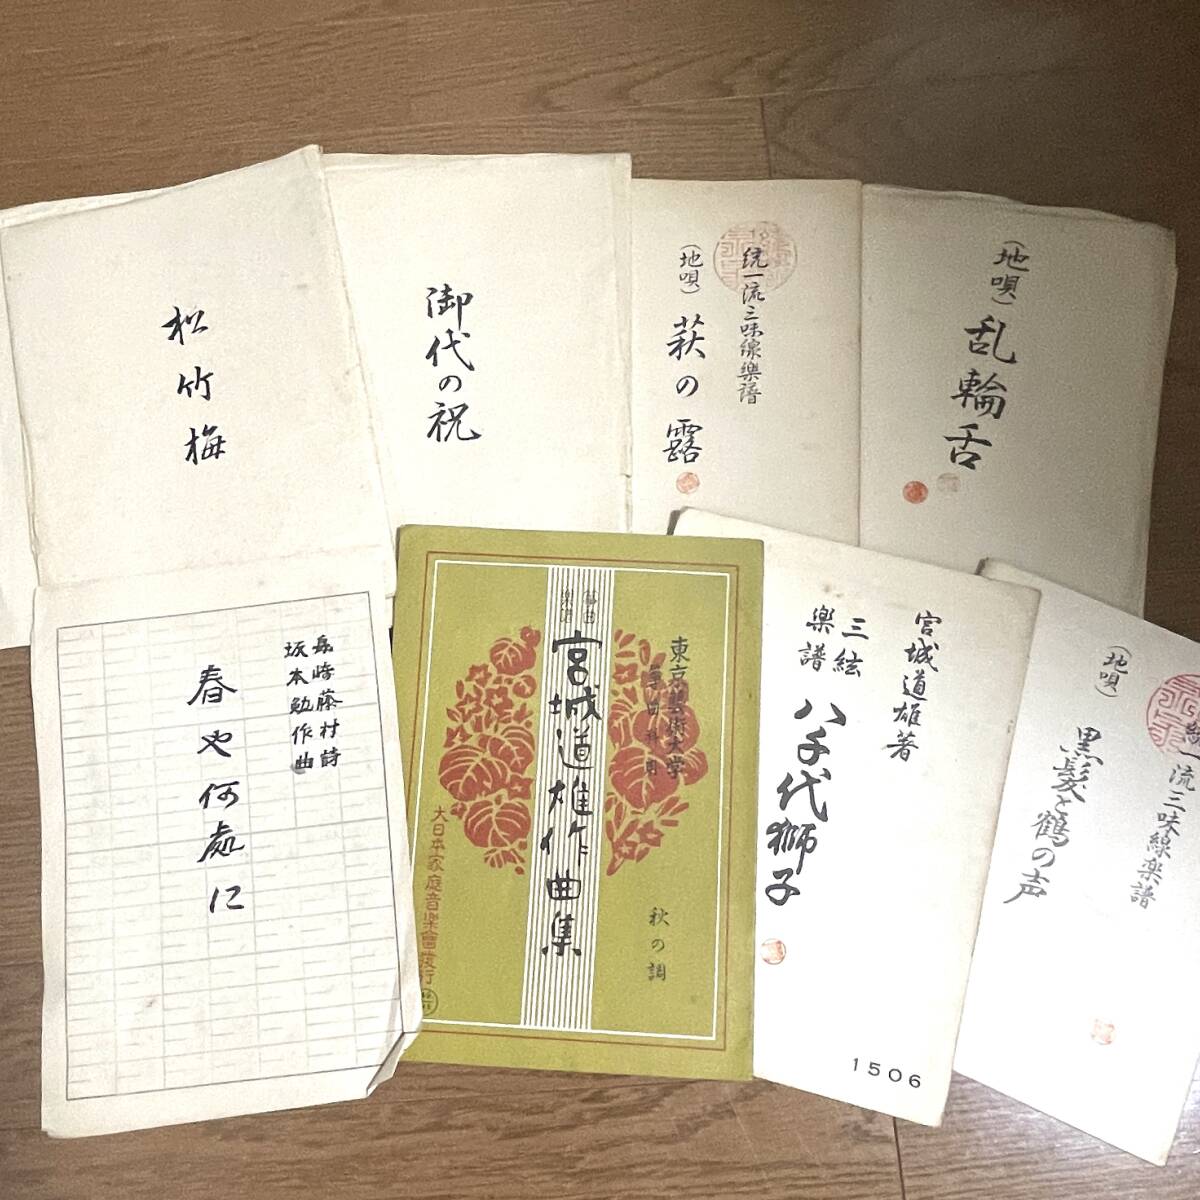 松竹梅
御代の祝
統一流三味線楽譜
(地唄)
萩の露
(地唄)
乱輪舌
島崎藤村詩
坂本勉作曲
春や何處に
東京藝術大学
箏曲科用
箏曲
楽譜
宮城道雄作曲集
秋の調
大日本家庭音楽會發行
宮城道雄著
三絃
楽譜
八千代獅子
1506
統一流三味線楽譜
(地唄)
黒髪と鶴の声